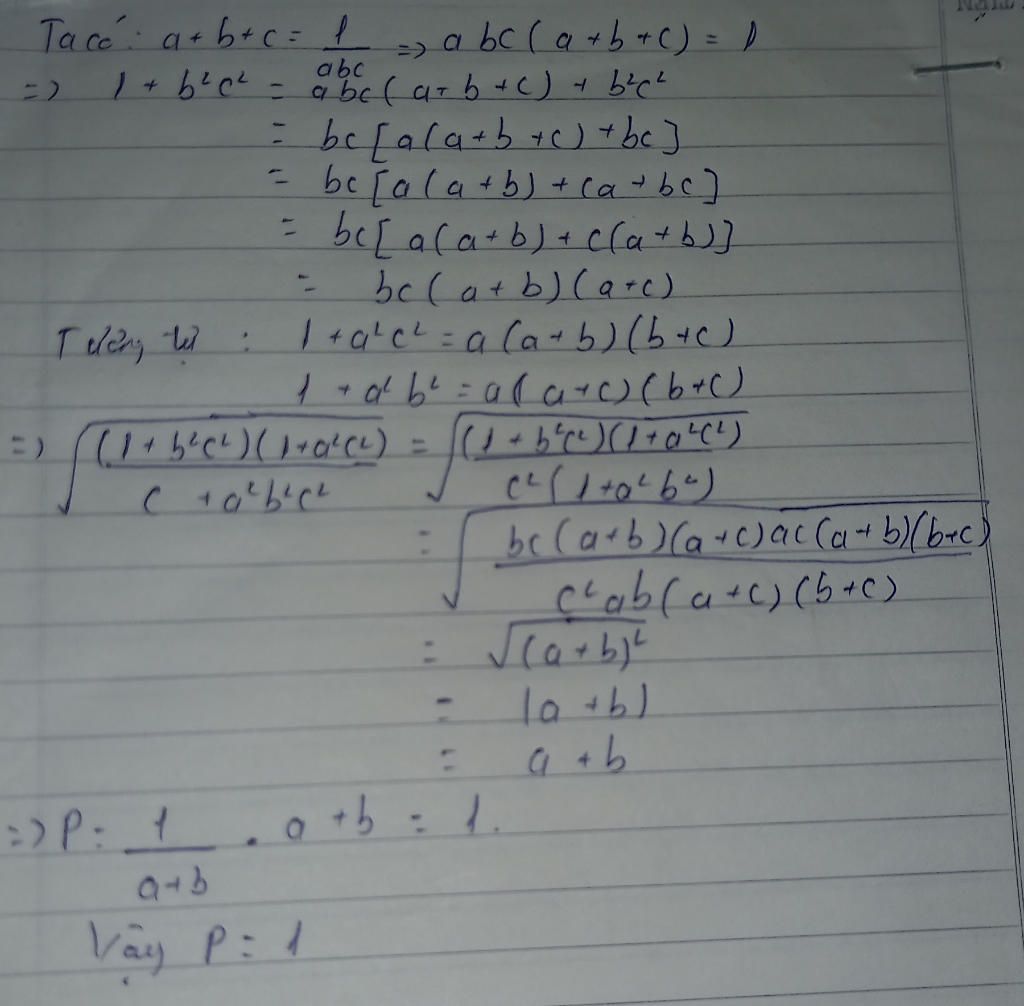 Ta có: a + b + c = 1/abc => abc(a + b + c) = 1
=> 1 + b²c² = abc(a + b + c) + b²c²
= bc[a(a + b + c) + bc]
= bc[a(a + b) + ca + bc]
= bc[a(a + b) + c(a + b)]
= bc(a + b)(a + c)
Tương tự : 1 + a²c² = a(a + b)(b + c)
1 + a²b² = a(a + c)(b + c)
=> √((1 + b²c²)(1 + a²c²) / (c + a²b²c²)) = √((1 + b²c²)(1 + a²c²) / (c²(1 + a²b²)))
= √(bc(a + b)(a + c)ac(a + b)(b + c) / (c²ab(a + c)(b + c)))
= √(a + b)²
= |a + b|
= a + b
=> P = 1/(a + b) . a + b = 1.
Vậy P = 1